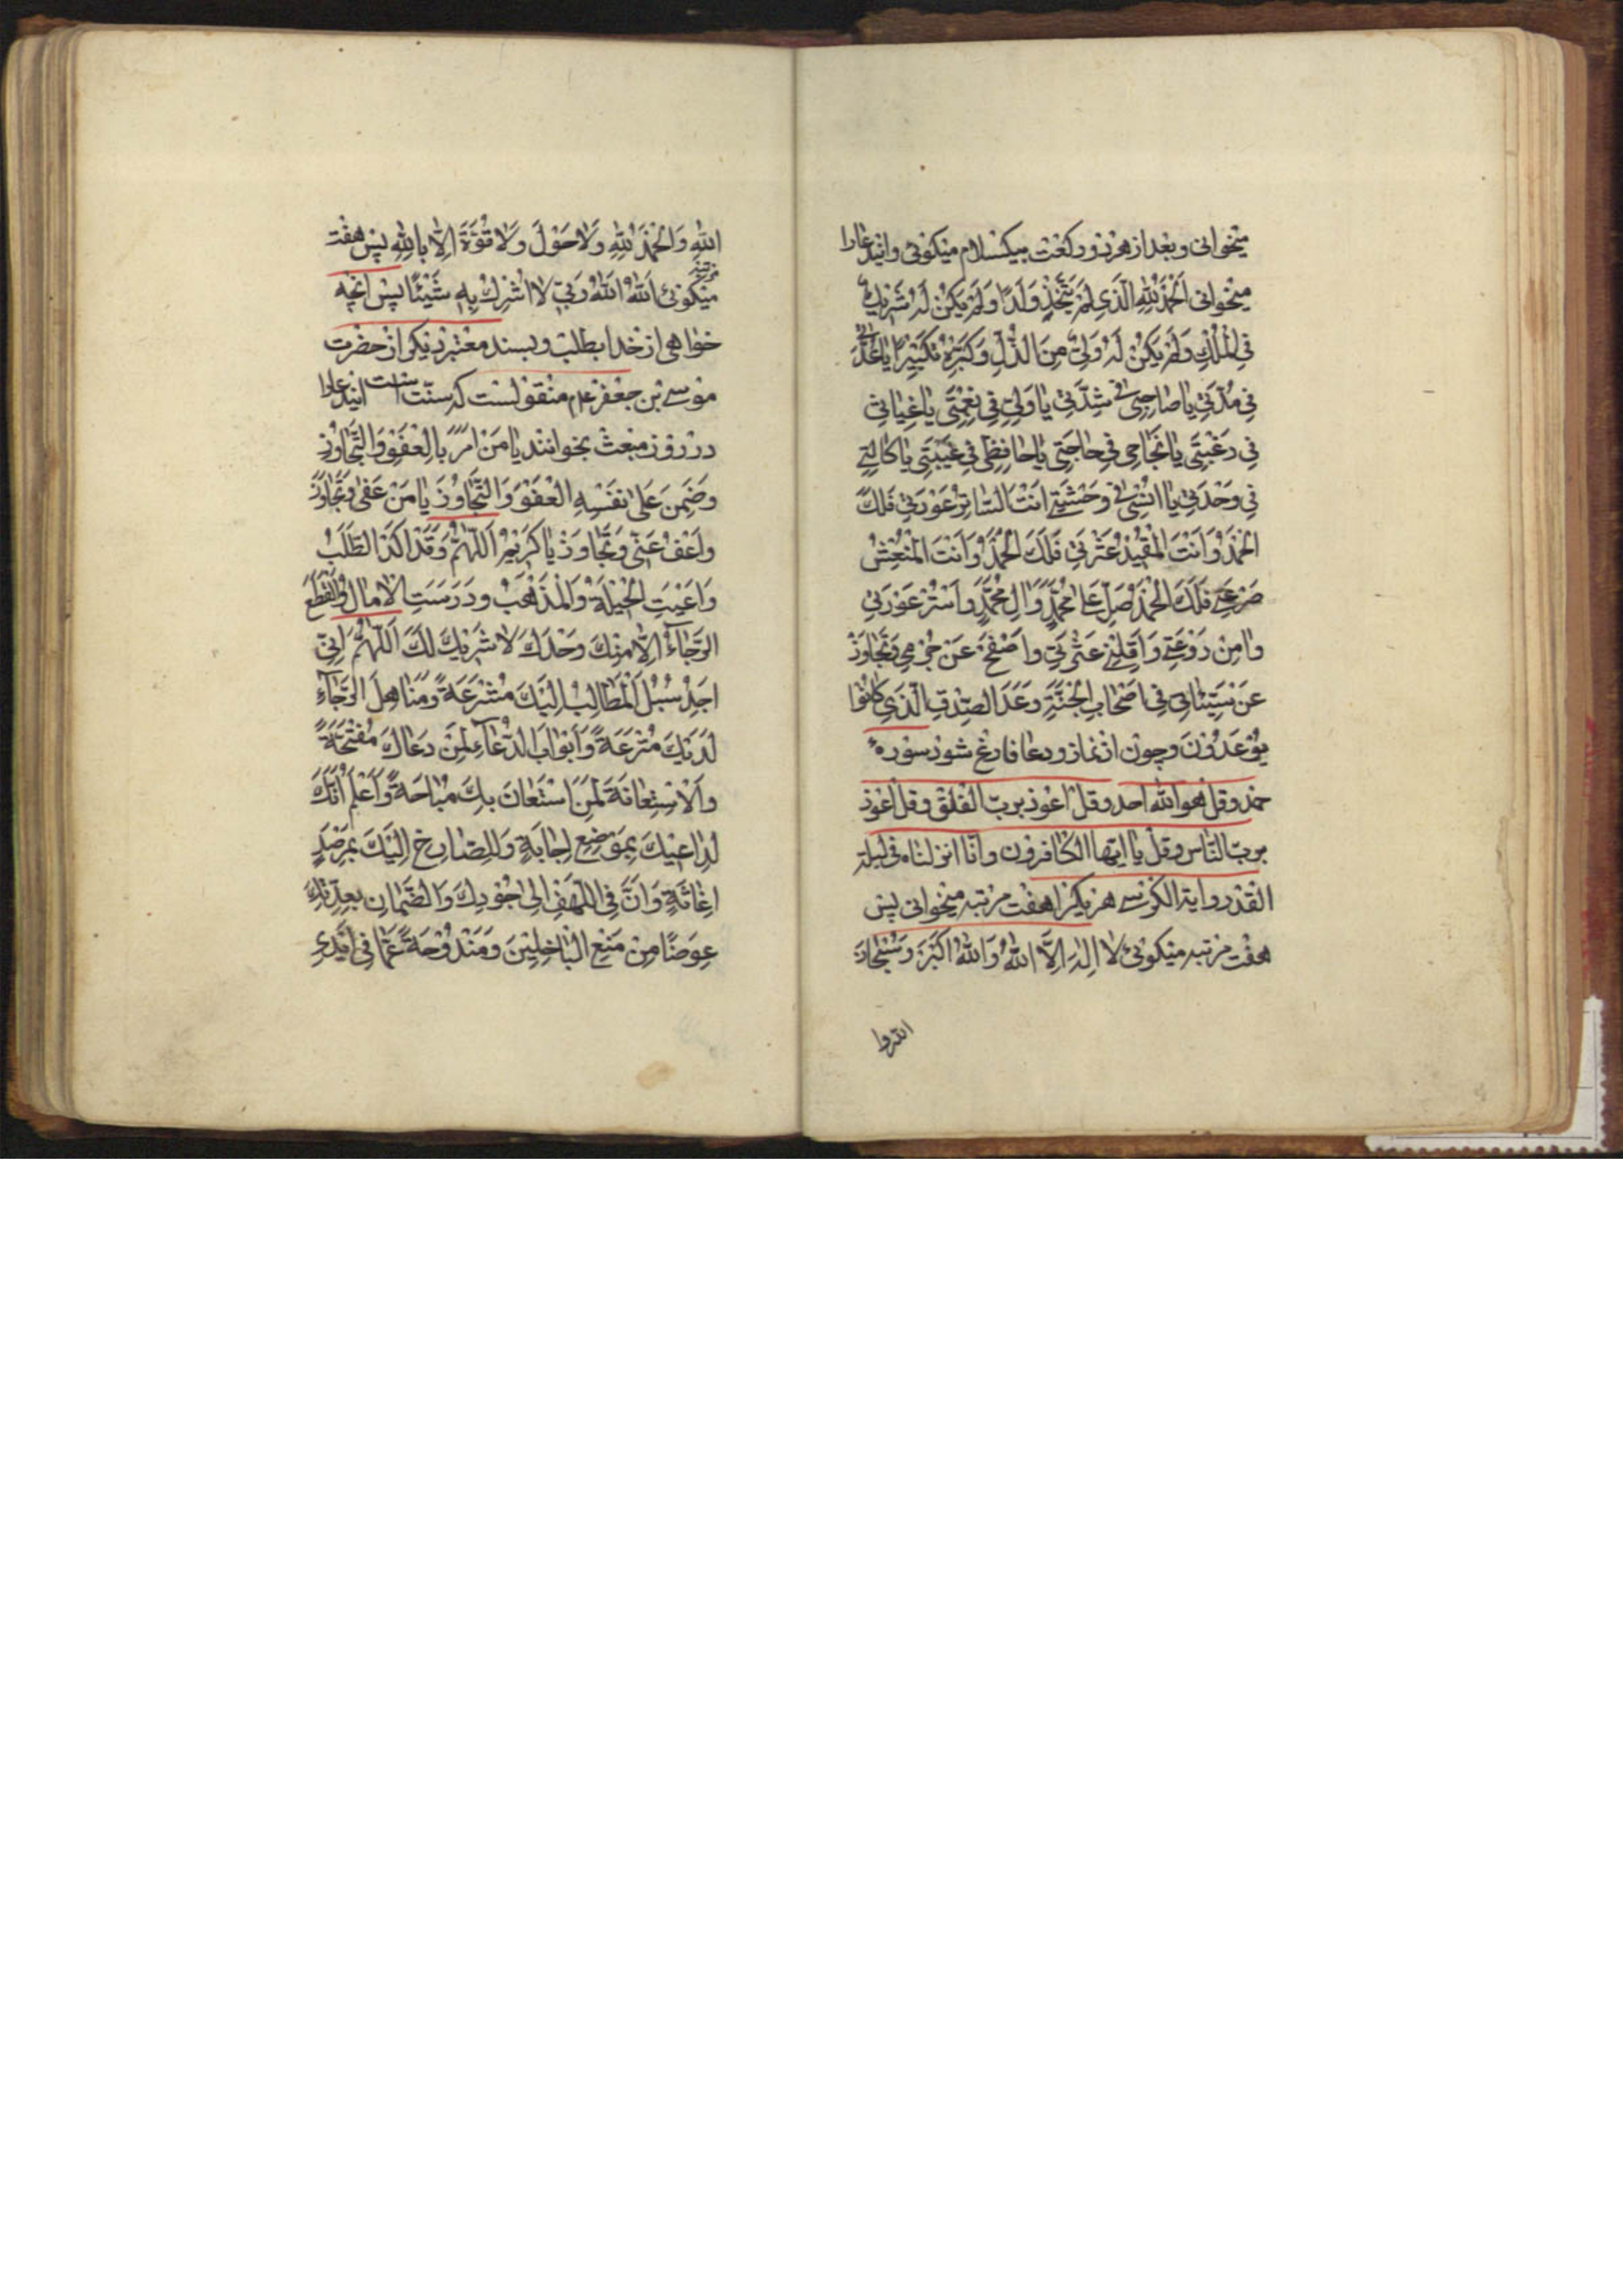 میخوانی و بعد از هر دو رکعت بیکسلام میکوئی و ایندعا را
میخوانی اَلْحَمْدُ لِلّٰهِ الَّذِی لَمْ یَتَّخِذْ وَلَدًا وَلَمْ یَکُنْ لَهُ شَرِیكٌ
فِی الْمُلْكِ وَلَمْ یَکُنْ لَهُ وَلِیٌّ مِنَ الذُّلِّ وَکَبِّرْهُ تَکْبِیرًا یَا عُدَّتِی
فِی مُدَّتِی یَا صَاحِبِی فِی شِدَّتِی یَا وَلِیِّی فِی نِعْمَتِی یَا غِیَاثِی
فِی رَغْبَتِی یَا نَجَاحِی فِی حَاجَتِی یَا حَافِظِی فِی غَیْبَتِی یَا کَالِئِی
فِی وَحْدَتِی یَا اُنْسِی فِی وَحْشَتِی اَنْتَ السَّاتِرُ عَوْرَتِی فَلَكَ
الْحَمْدُ وَاَنْتَ الْمُقِیلُ عَثْرَتِی فَلَكَ الْحَمْدُ وَاَنْتَ الْمُنْعِشُ
صَرْعَتِی فَلَكَ الْحَمْدُ صَلِّ عَلَی مُحَمَّدٍ وَآلِ مُحَمَّدٍ وَاسْتُرْ عَوْرَتِی
وَآمِنْ رَوْعَتِی وَاَقِلْنِی عَثْرَتِی وَاصْفَحْ عَنْ جُرْمِی وَتَجَاوَزْ
عَنْ سَیِّئَاتِی فِی اَصْحَابِ الْجَنَّةِ وَعْدَ الصِّدْقِ الَّذِی کَانُوا
یُوعَدُونَ و چون از نماز و دعا فارغ شود سورهٔ
حمد و قل هو اللّه احد و قل اعوذ برب الفلق و قل اعوذ
برب الناس و قل یا ایها الکافرون و انا انزلناه فی لیلة
القدر و ایة الکرسی هر یکرا هفت مرتبه میخوانی پس
هفت مرتبه میکوئی لَا اِلٰهَ اِلَّا اللّٰهُ وَاللّٰهُ اَکْبَرُ وَسُبْحَانَ
اللّه وا
اللّٰهِ وَالْحَمْدُ لِلّٰهِ وَلَا حَوْلَ وَلَا قُوَّةَ اِلَّا بِاللّٰهِ پس هفت
مرتبه
میکوئی اَللّٰهُ اَللّٰهُ رَبِّی لَا اُشْرِكُ بِهِ شَیْئًا پس انچه
خواهی از خدا بطلب و بسند معتبر دیکر از حضرت
موسی بن جعفر ع م منقولست که سنّت است ایندعا را
در روز مبعث بخوانند یَا مَنْ اَمَرَ بِالْعَفْوِ وَالتَّجَاوُزِ
وَضَمِنَ عَلَی نَفْسِهِ الْعَفْوَ وَالتَّجَاوُزَ یَا مَنْ عَفَی وَتَجَاوَزَ
وَاعْفُ عَنِّی وَتَجَاوَزْ یَا کَرِیمُ اَللّٰهُمَّ وَقَدْ اَکْدَا الطَّلَبُ
وَاَعْیَتِ الْحِیلَةُ وَالْمَذْهَبُ وَدَرَسَتِ الْآمَالُ وَانْقَطَعَ
الرَّجَاءُ اِلَّا مِنْكَ وَحْدَكَ لَا شَرِیكَ لَكَ اَللّٰهُمَّ اِنِّی
اَجِدُ سُبُلَ الْمَطَالِبِ اِلَیْكَ مُشْرَعَةً وَمَنَاهِلَ الرَّجَاءِ
لَدَیْكَ مُتْرَعَةً وَاَبْوَابَ الدُّعَاءِ لِمَنْ دَعَاكَ مُفَتَّحَةً
وَالْاِسْتِعَانَةَ لِمَنِ اسْتَعَانَ بِكَ مُبَاحَةً وَاَعْلَمُ اَنَّكَ
لِدَاعِیكَ بِمَوْضِعِ اِجَابَةٍ وَلِلصَّارِخِ اِلَیْكَ بِمَرْصَدِ
اِغَاثَةٍ وَاَنَّ فِی اللَّهْفِ اِلَی جُودِكَ وَالضَّمَانِ بِعِدَتِكَ
عِوَضًا مِنْ مَنْعِ الْبَاخِلِینَ وَمَنْدُوحَةً عَمَّا فِی اَیْدِی